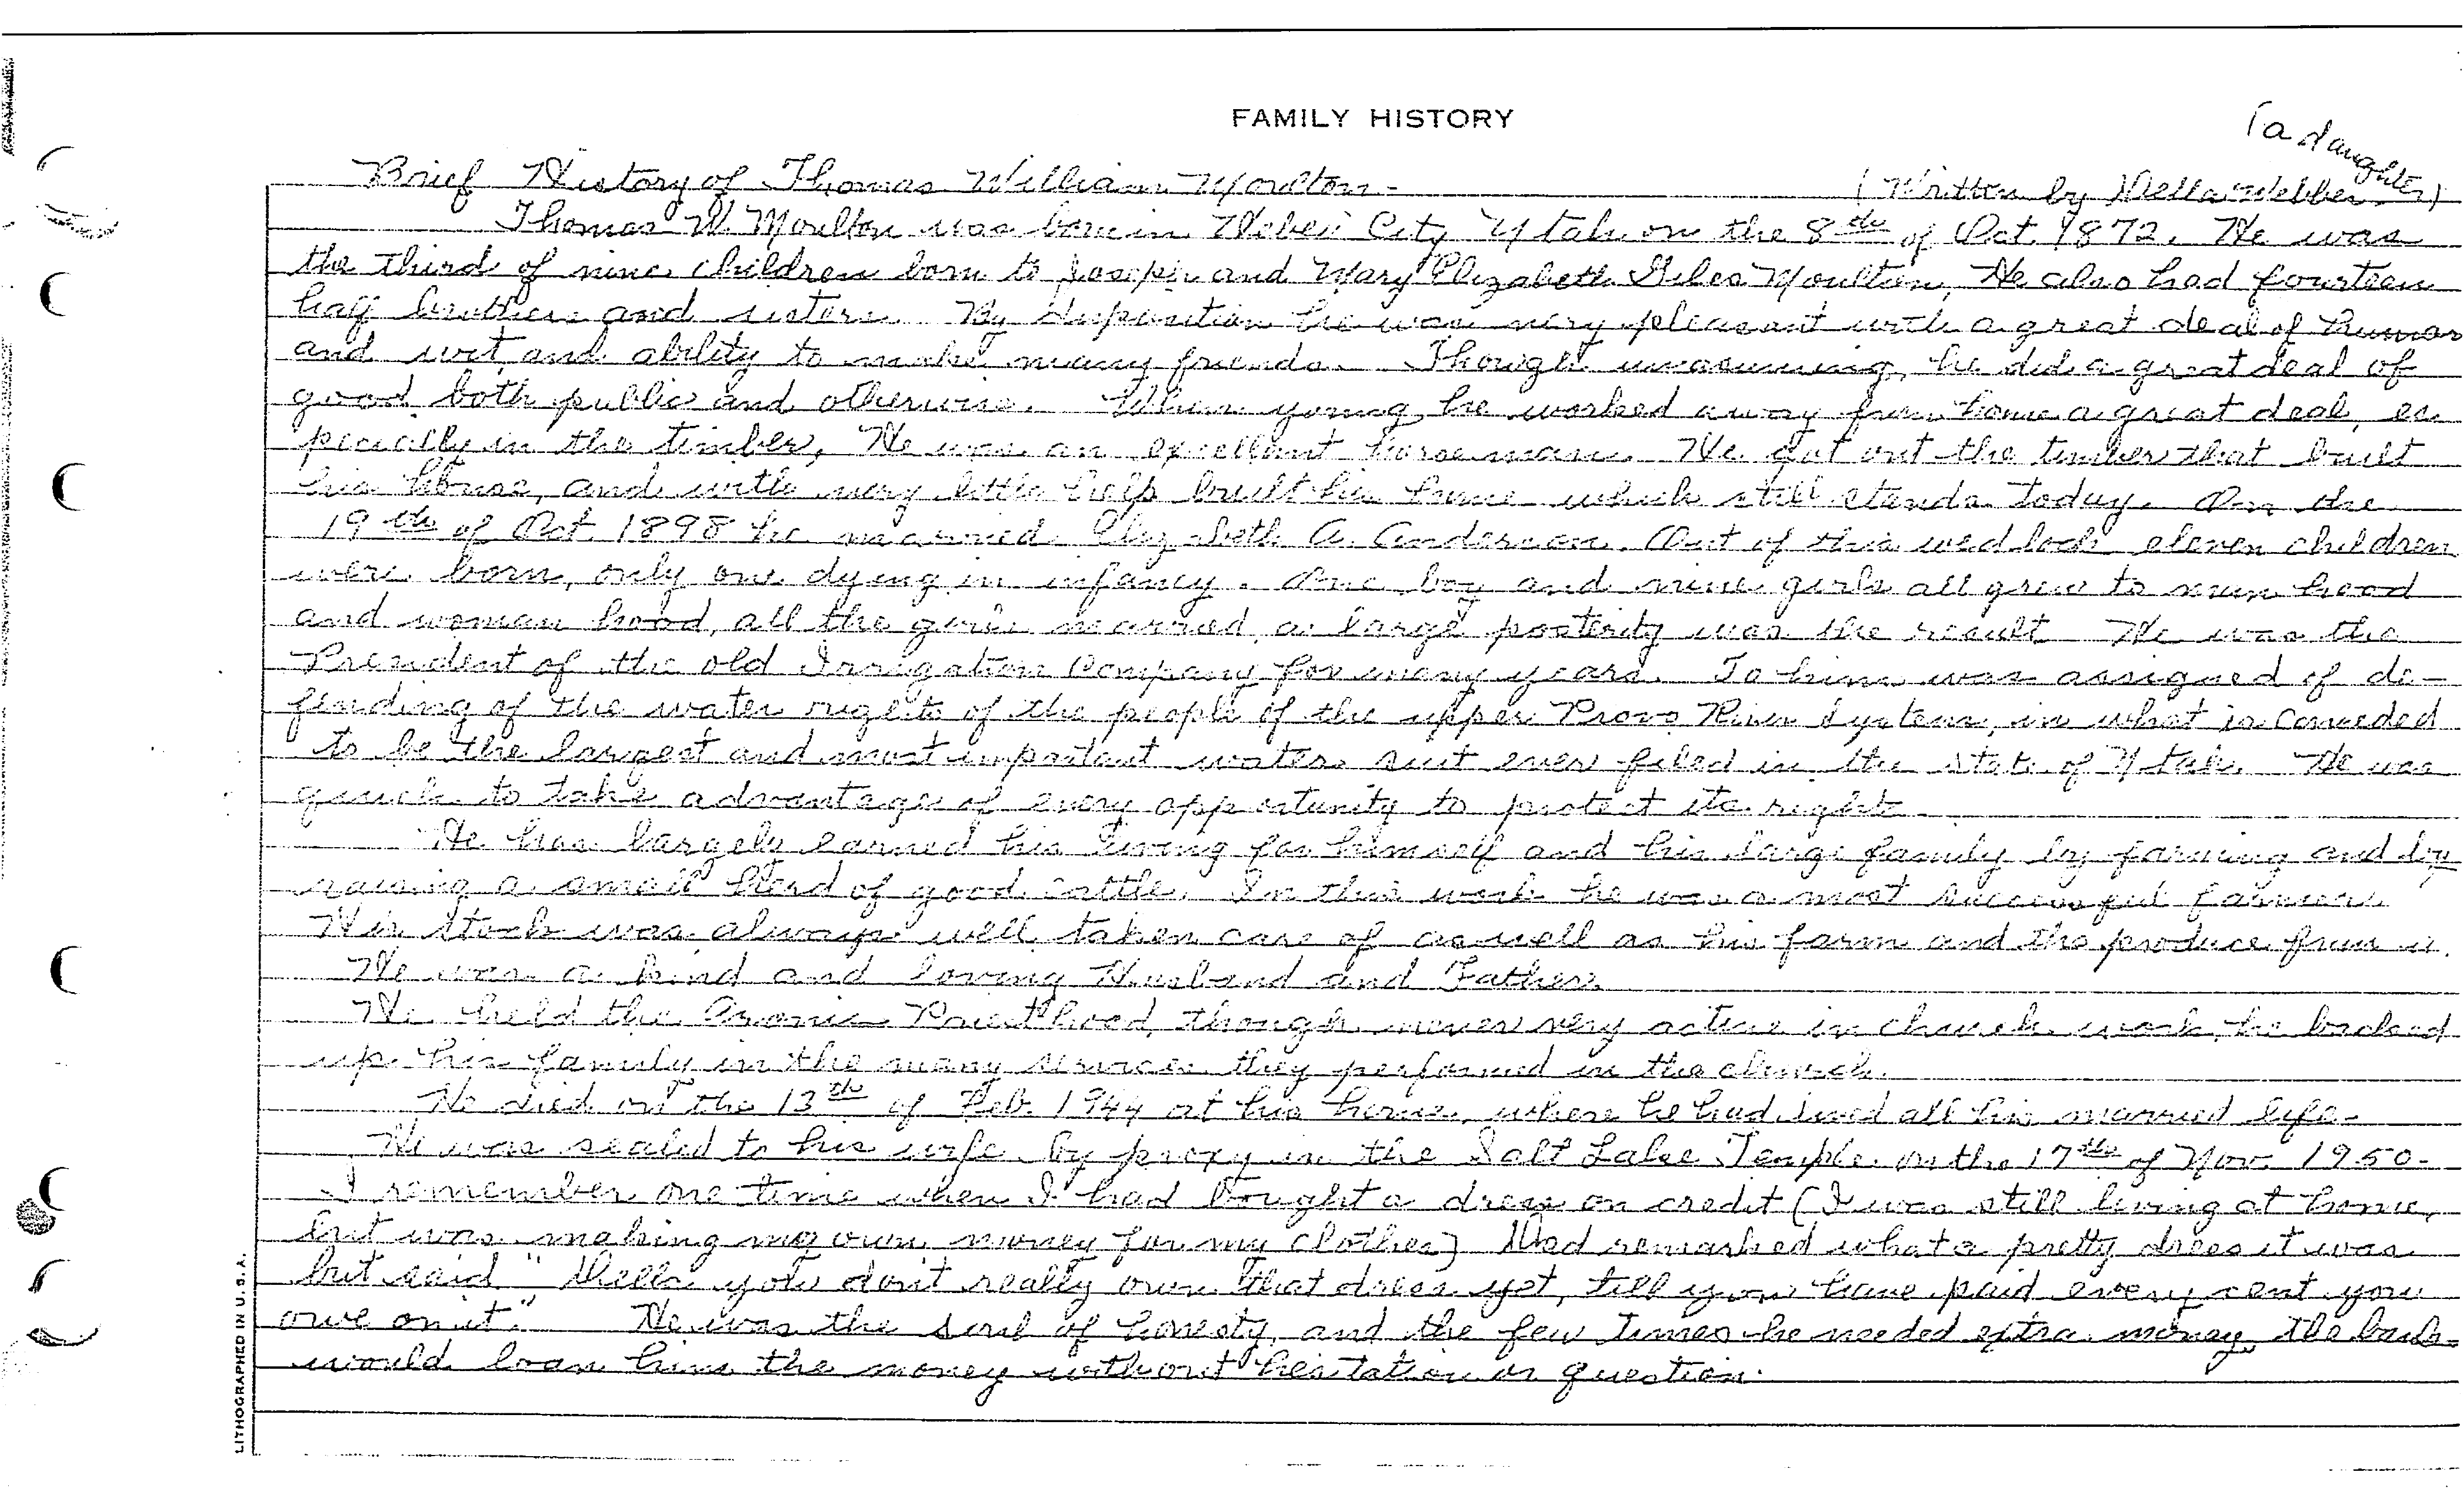 FAMILY HISTORY
(a daughter)
Brief History of Thomas William Moulton - (Written by Della Webber)
Thomas W. Moulton was born in Heber City Utah on the 8th of Oct. 1872. He was
the third of nine children born to Joseph and Mary Elizabeth Giles Moulton, He also had fourteen
half brothers and sisters. By disposition he was very pleasant with a great deal of humor
and wit, and ability to make many friends. Though unassuming, he did a great deal of
good both public and otherwise. When young, he worked away from home a great deal, es
pecially in the timber, He was an excellant horseman. He got out the timber that built
his house, and with very little help built his home which still stands today. On the
19th of Oct. 1898 he married Elizabeth A. Anderson. Out of this wedlock eleven children
were born, only one dying in infancy. One boy and nine girls all grew to man hood
and woman hood, all the girls married, a large posterity was the result He was the
President of the old Irrigation Company for many years. To him was assigned of de-
fending of the water rights of the people of the upper Provo River System, in what is conceded
to be the largest and most important water suit ever filed in the state of Utah. He was
quick to take advantage of every opportunity to protect its right.
He has largely earned his living for himself and his large family by farming and by
raising a small herd of good cattle. In this work he was a most successful farmer.
His stock was always well taken care of as well as his farm and the produce from it.
He was a kind and loving Husband and Father.
He held the Aronic Priesthood, though never very active in church work, he backed
up his family in the many services they performed in the church.
He died on the 13th of Feb. 1944 at his home, where he had lived all his married life-
He was sealed to his wife by proxy in the Salt Lake Temple on the 17th of Nov. 1950-
I remember one time when I had bought a dress on credit (I was still living at home,
but was making my own money for my clothes) Dad remarked what a pretty dress it was
but said "Della you don't really own that dress yet, till you have paid every cent you
owe on it." He was the soul of honesty, and the few times he needed extra money, the bank
would loan him the money without hesitation or question.
LITHOGRAPHED IN U.S.A.